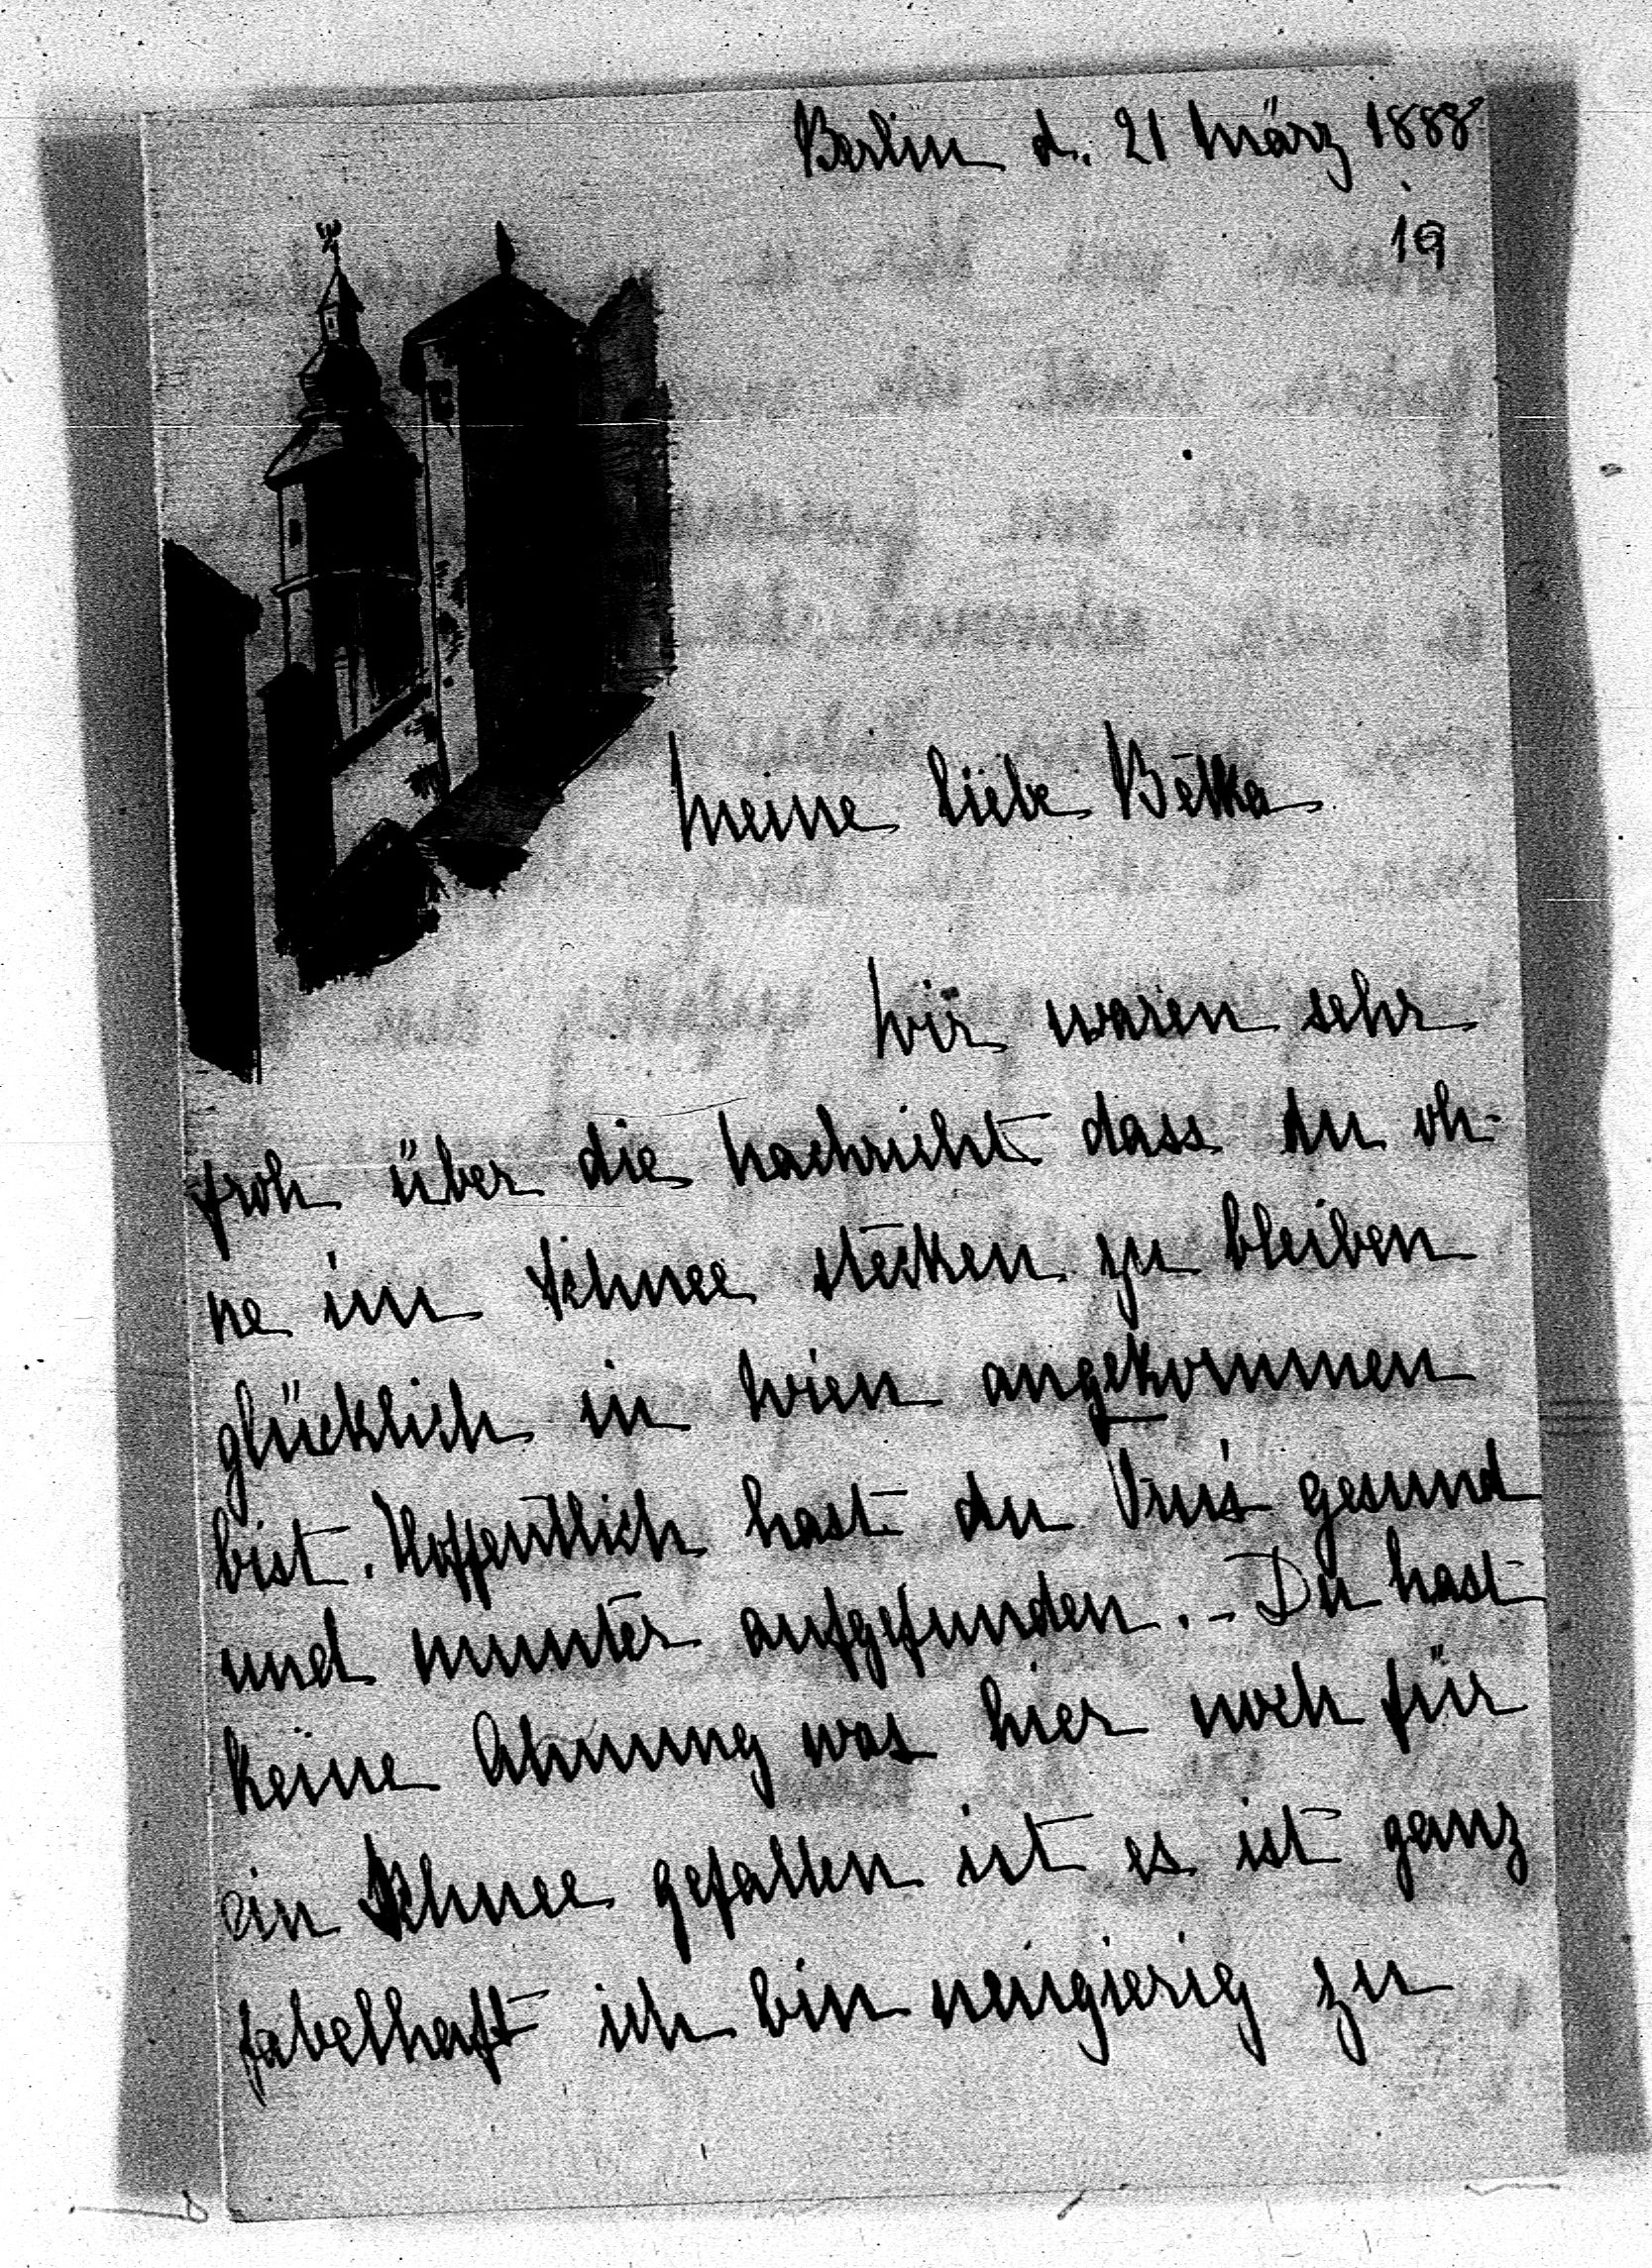 Berlin d. 21 März 1888
19
Meine liebe Betka
Wir waren sehr
froh über die Nachricht dass du oh-
ne im Schnee stecken zu bleiben
glücklich in Wien angekommen
bist. Hoffentlich hast du gesund
und munter aufgefunden. – Du hast
keine Ahnung was hier noch für
ein Schnee gefallen ist es ist ganz
fabelhaft ich bin neugierig zu